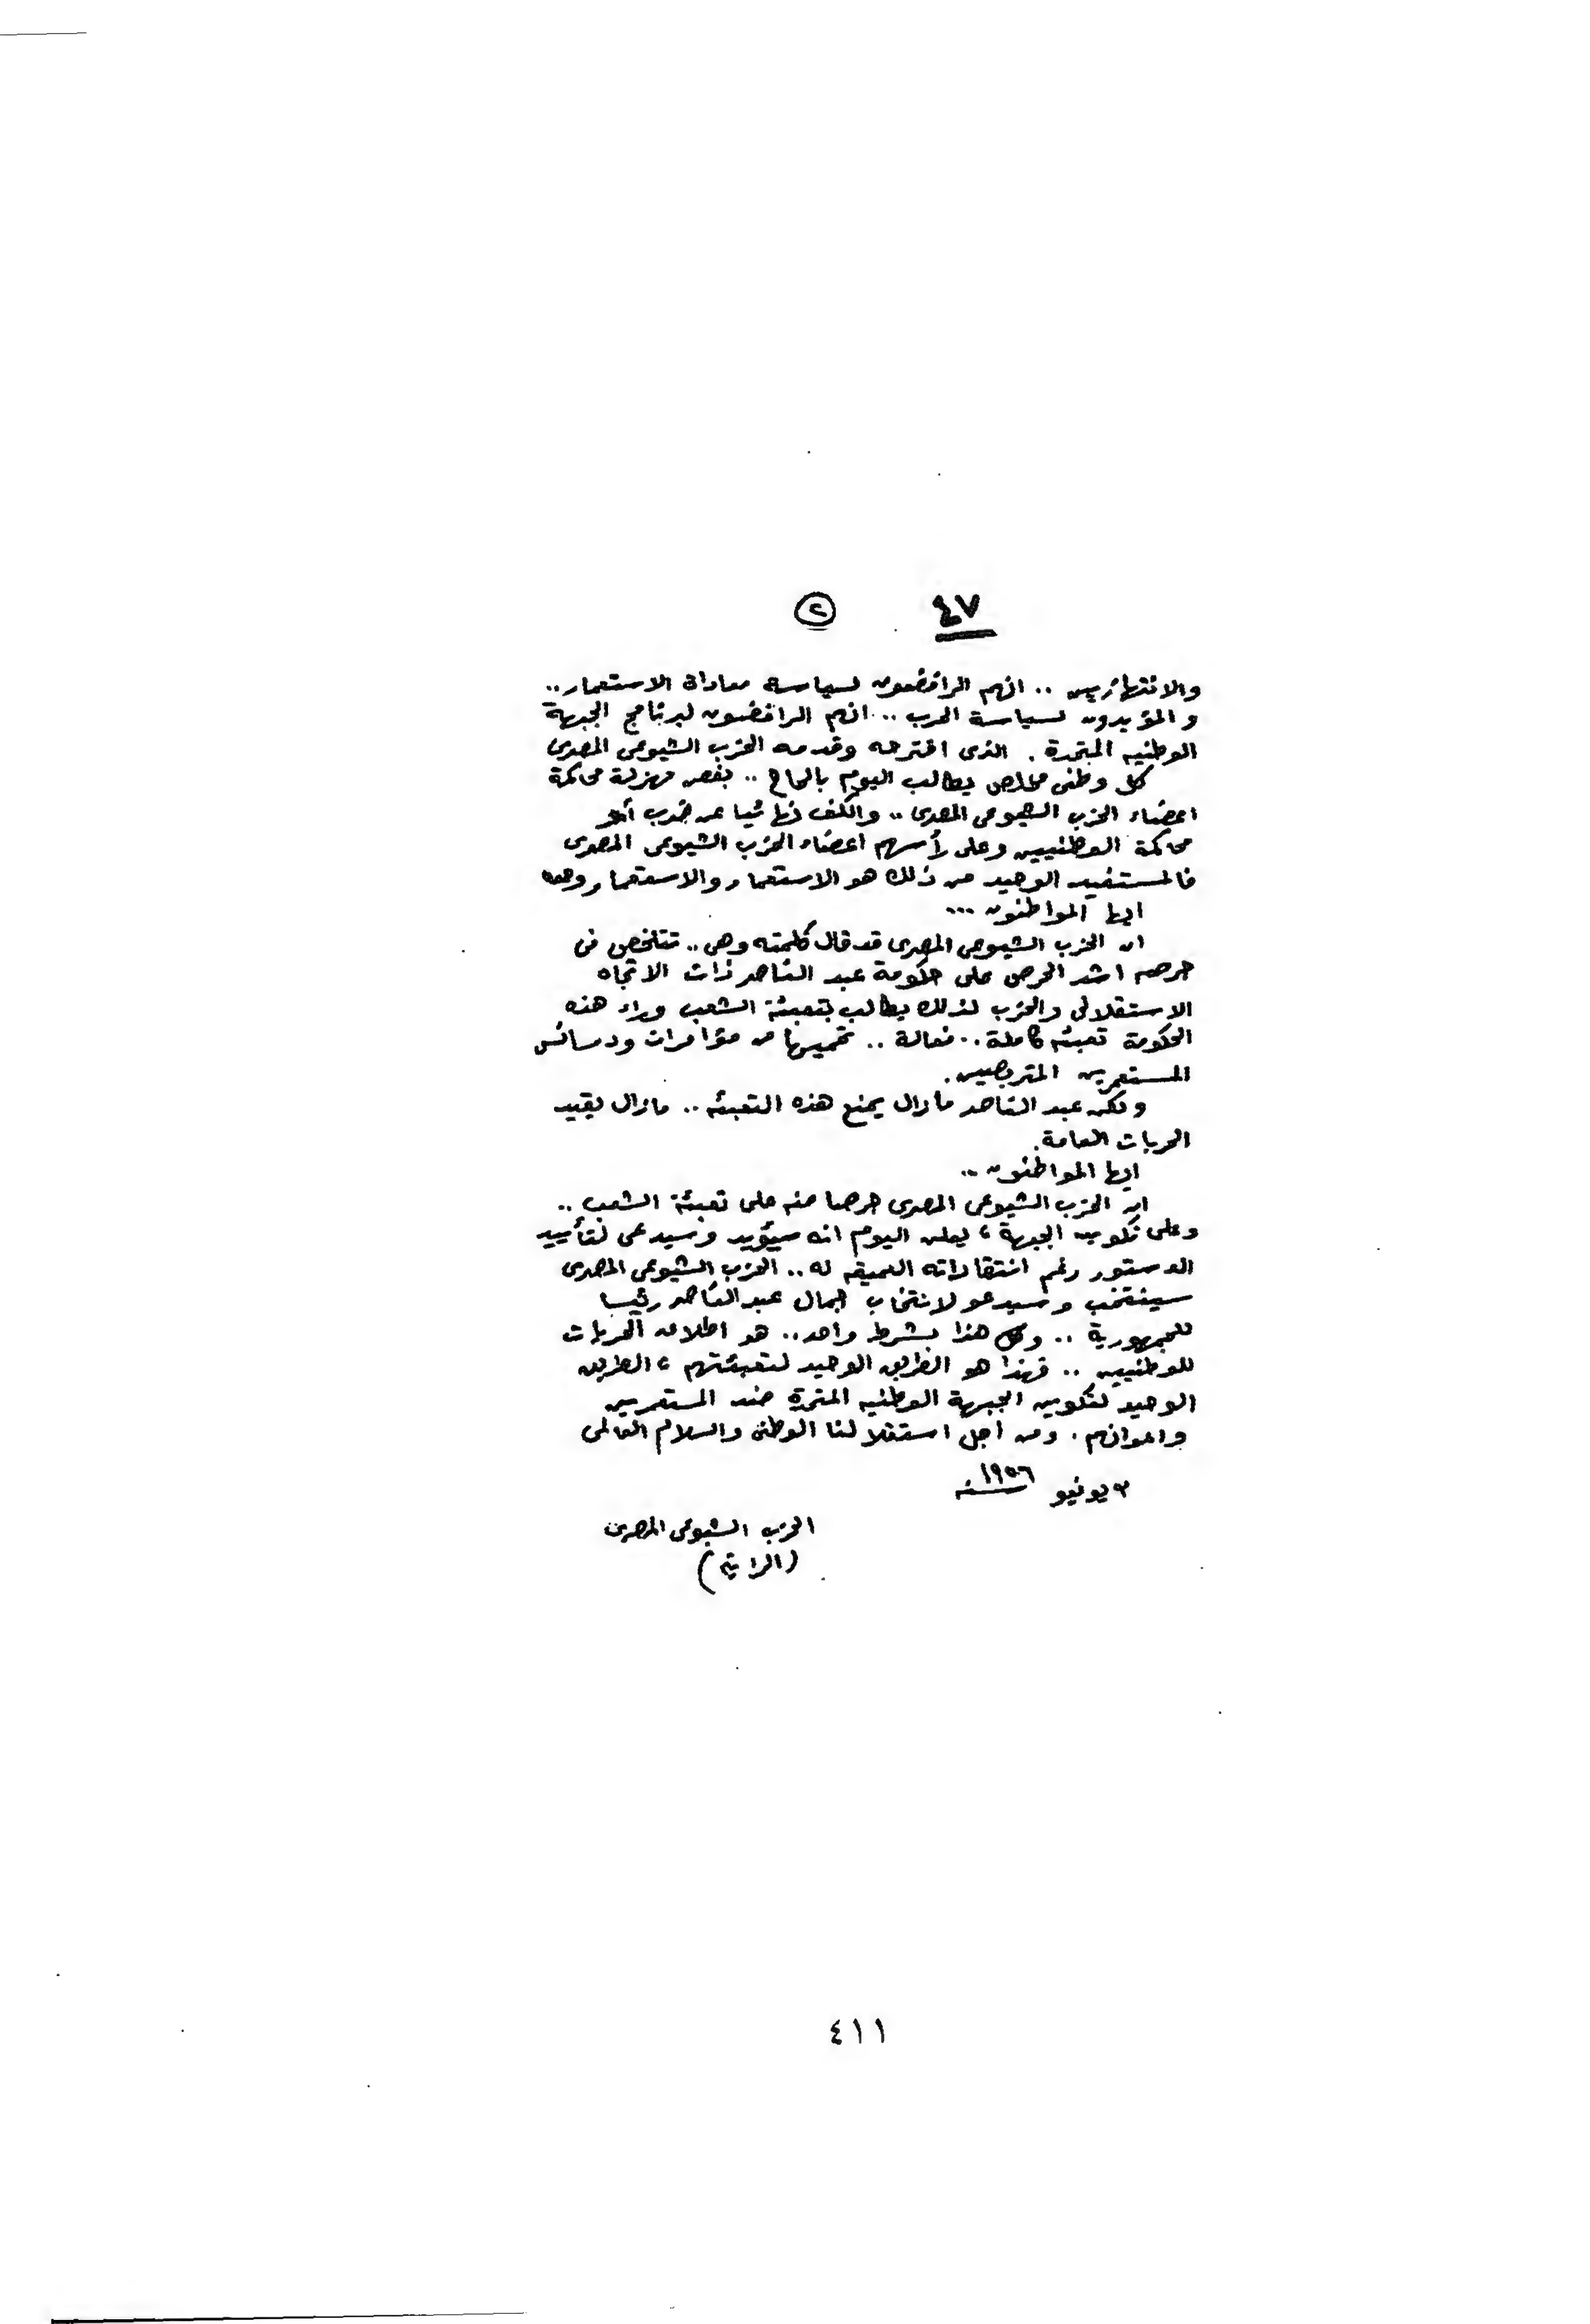 ٤٧ ②
والانتهازيين .. انهم الرافضون لسياسة معاداة الاستعمار ..
و المؤيدون لسياسة الحرب .. انهم الرافضون لبرنامج الجبهة
الوطنيه المتحدة . الذى اقترحه وقدمه الحزب الشيوعى المصرى
كل وطنى مخلص يطالب اليوم بالحاح .. بفض مهزلة محاكمة
اعضاء الحزب الشيوعى المصرى .. والكف نهائيا عن ضرب أو
محاكمة الوطنيين وعلى رأسهم اعضاء الحزب الشيوعى المصرى
فالمستفيد الوحيد من ذلك هو الاستعمار والاستعمار وحده
ايها المواطنون ...
ان الحزب الشيوعى المصرى قد قال كلمته وهى .. تتلخص فى
حرصه اشد الحرص على حكومة عبد الناصر ذات الاتجاه
الاستقلالى والحزب لذلك يطالب بتعبئة الشعب وراء هذه
الحكومة تعبئه كاملة .. فعالة .. تحميها من مؤامرات ودسائس
المستعمرين المتربصين .
ولكن عبد الناصر مازال يمنع هذه التعبئه .. مازال يقيد
الحريات العامة .
ايها المواطنون ..
ان الحزب الشيوعى المصرى حرصا منه على تعبئة الشعب ..
وعلى تكوين الجبهة ، يعلن اليوم انه سيؤيد وسيدعى لتأييد
الدستور رغم انتقاداته العميقه له .. الحزب الشيوعى المصرى
سينتخب وسيدعو لانتخاب جمال عبد الناصر رئيسا
للجمهورية .. وكل هذا بشرط واحد .. هو اطلاق الحريات
للوطنيين .. فهذا هو الطريق الوحيد لتعبئتهم ، الطريق
الوحيد لتكوين الجبهة الوطنيه المتحدة ضد المستعمرين
واعوانهم . ومن اجل استقلالنا الوطنى والسلام العالمى
٣ يونيو سنة ١٩٥٦
الحزب الشيوعى المصرى
(الراية)
٤١١